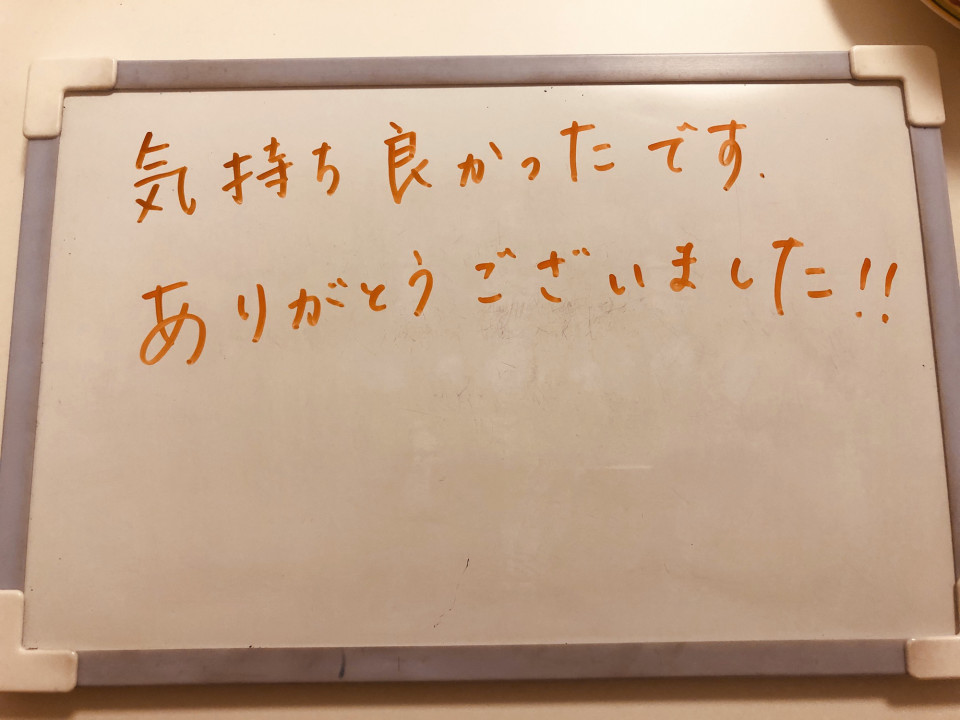 気持ち良かったです.
ありがとうございました!!